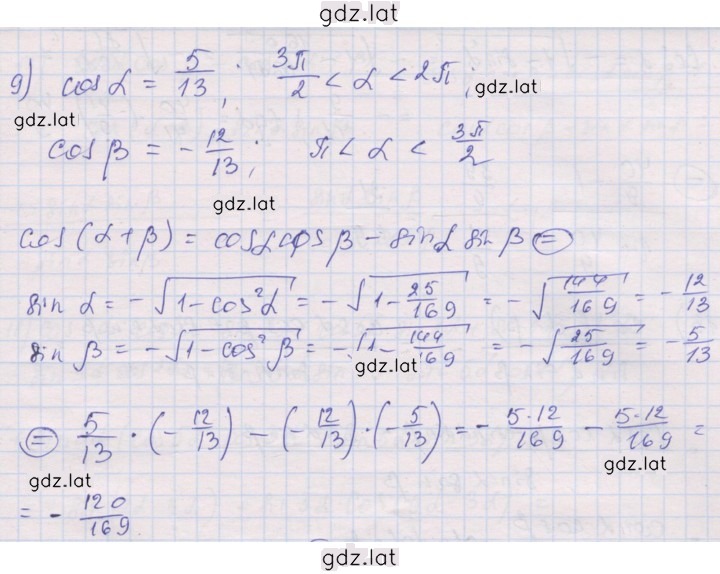 gdz.lat
g) cos α = 5/13; 3π/2 < α < 2π;
gdz.lat
gdz.lat
cos β = - 12/13; π < α < 3π/2
gdz.lat
cos(α+β) = cosα cosβ - sinα sinβ (=)
sin α = -√(1-cos²α) = -√(1-25/169) = -√(144/169) = -12/13
sin β = -√(1-cos²β) = -√(1-144/169) = -√(25/169) = -5/13
gdz.lat
(=) 5/13 · (-12/13) - (-12/13)·(-5/13) = - 5·12/169 - 5·12/169 =
gdz.lat
gdz.lat
= - 120/169
gdz.lat